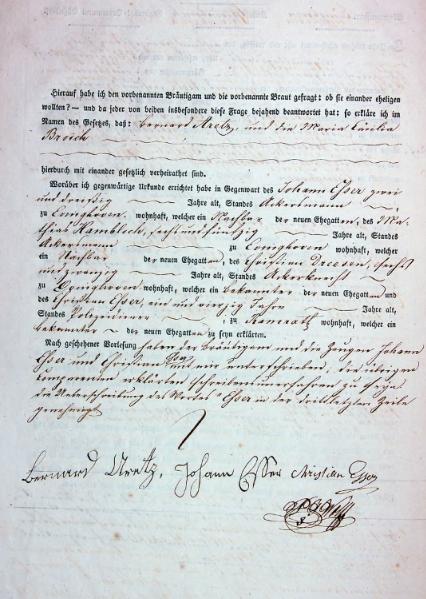 Hierauf habe ich den vorbenannten Bräutigam und die vorbenannte Braut gefragt: ob sie einander ehelichen
wollten? — und da jeder von beiden insbesondere diese Frage bejahend beantwortet hat: so erkläre ich im
Namen des Gesetzes, daß: Bernard Aretz, und die Maria Cäcilia
Broich
hierdurch mit einander gesetzlich verheirathet sind.
Worüber ich gegenwärtige Urkunde errichtet habe in Gegenwart des Johann Esser zwei
und dreißig Jahre alt, Standes Ackersmann
zu wohnhaft, welcher ein Nachbar der neuen Ehegatten, des Ma-
thias sechs und fünfzig Jahre alt, Standes
Ackersmann zu wohnhaft, welcher
ein Nachbar der neuen Ehegatten, des Christian Dreesen, sechs
und zwanzig Jahre alt, Standes Ackerknecht
zu wohnhaft, welcher ein bekannter der neuen Ehegatten und
des Christian Esser, ein und vierzig Jahre Jahre alt,
Standes Polizeidiener, zu wohnhaft, welcher ein
bekannter der neuen Ehegatten zu seyn erklärten.
Nach geschehener Vorlesung haben der Bräutigam und die Zeugen Johann
Esser und Christian Esser mit mir unterschrieben. Die übrigen
Comparenten erklärten schreibensunerfahren zu seyn
die des Wortes Esser in der drittletzten Zeile
genehmigt
Bernard Aretz, Johann Esser Christian Esser